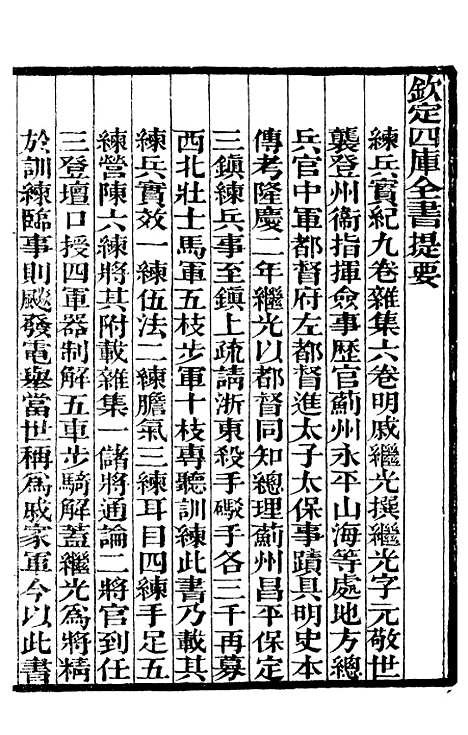 欽定四庫全書提要
練兵實紀九卷雜集六卷明戚繼光撰繼光字元敬世
襲登州衞指揮僉事歷官薊州永平山海等處地方總
兵官中軍都督府左都督進太子太保事蹟具明史本
傳考隆慶二年繼光以都督同知總理薊州昌平保定
三鎮練兵事至鎮上疏請浙東殺手礮手各三千再募
西北壯士馬軍五枝步軍十枝專聽訓練此書乃載其
練兵實效一練伍法二練膽氣三練耳目四練手足五
練營陳六練將其附載雜集一儲將通論二將官到任
三登壇口授四軍器制解五車步騎解蓋繼光為將精
於訓練臨事則飈發電舉當世稱為戚家軍今以此書